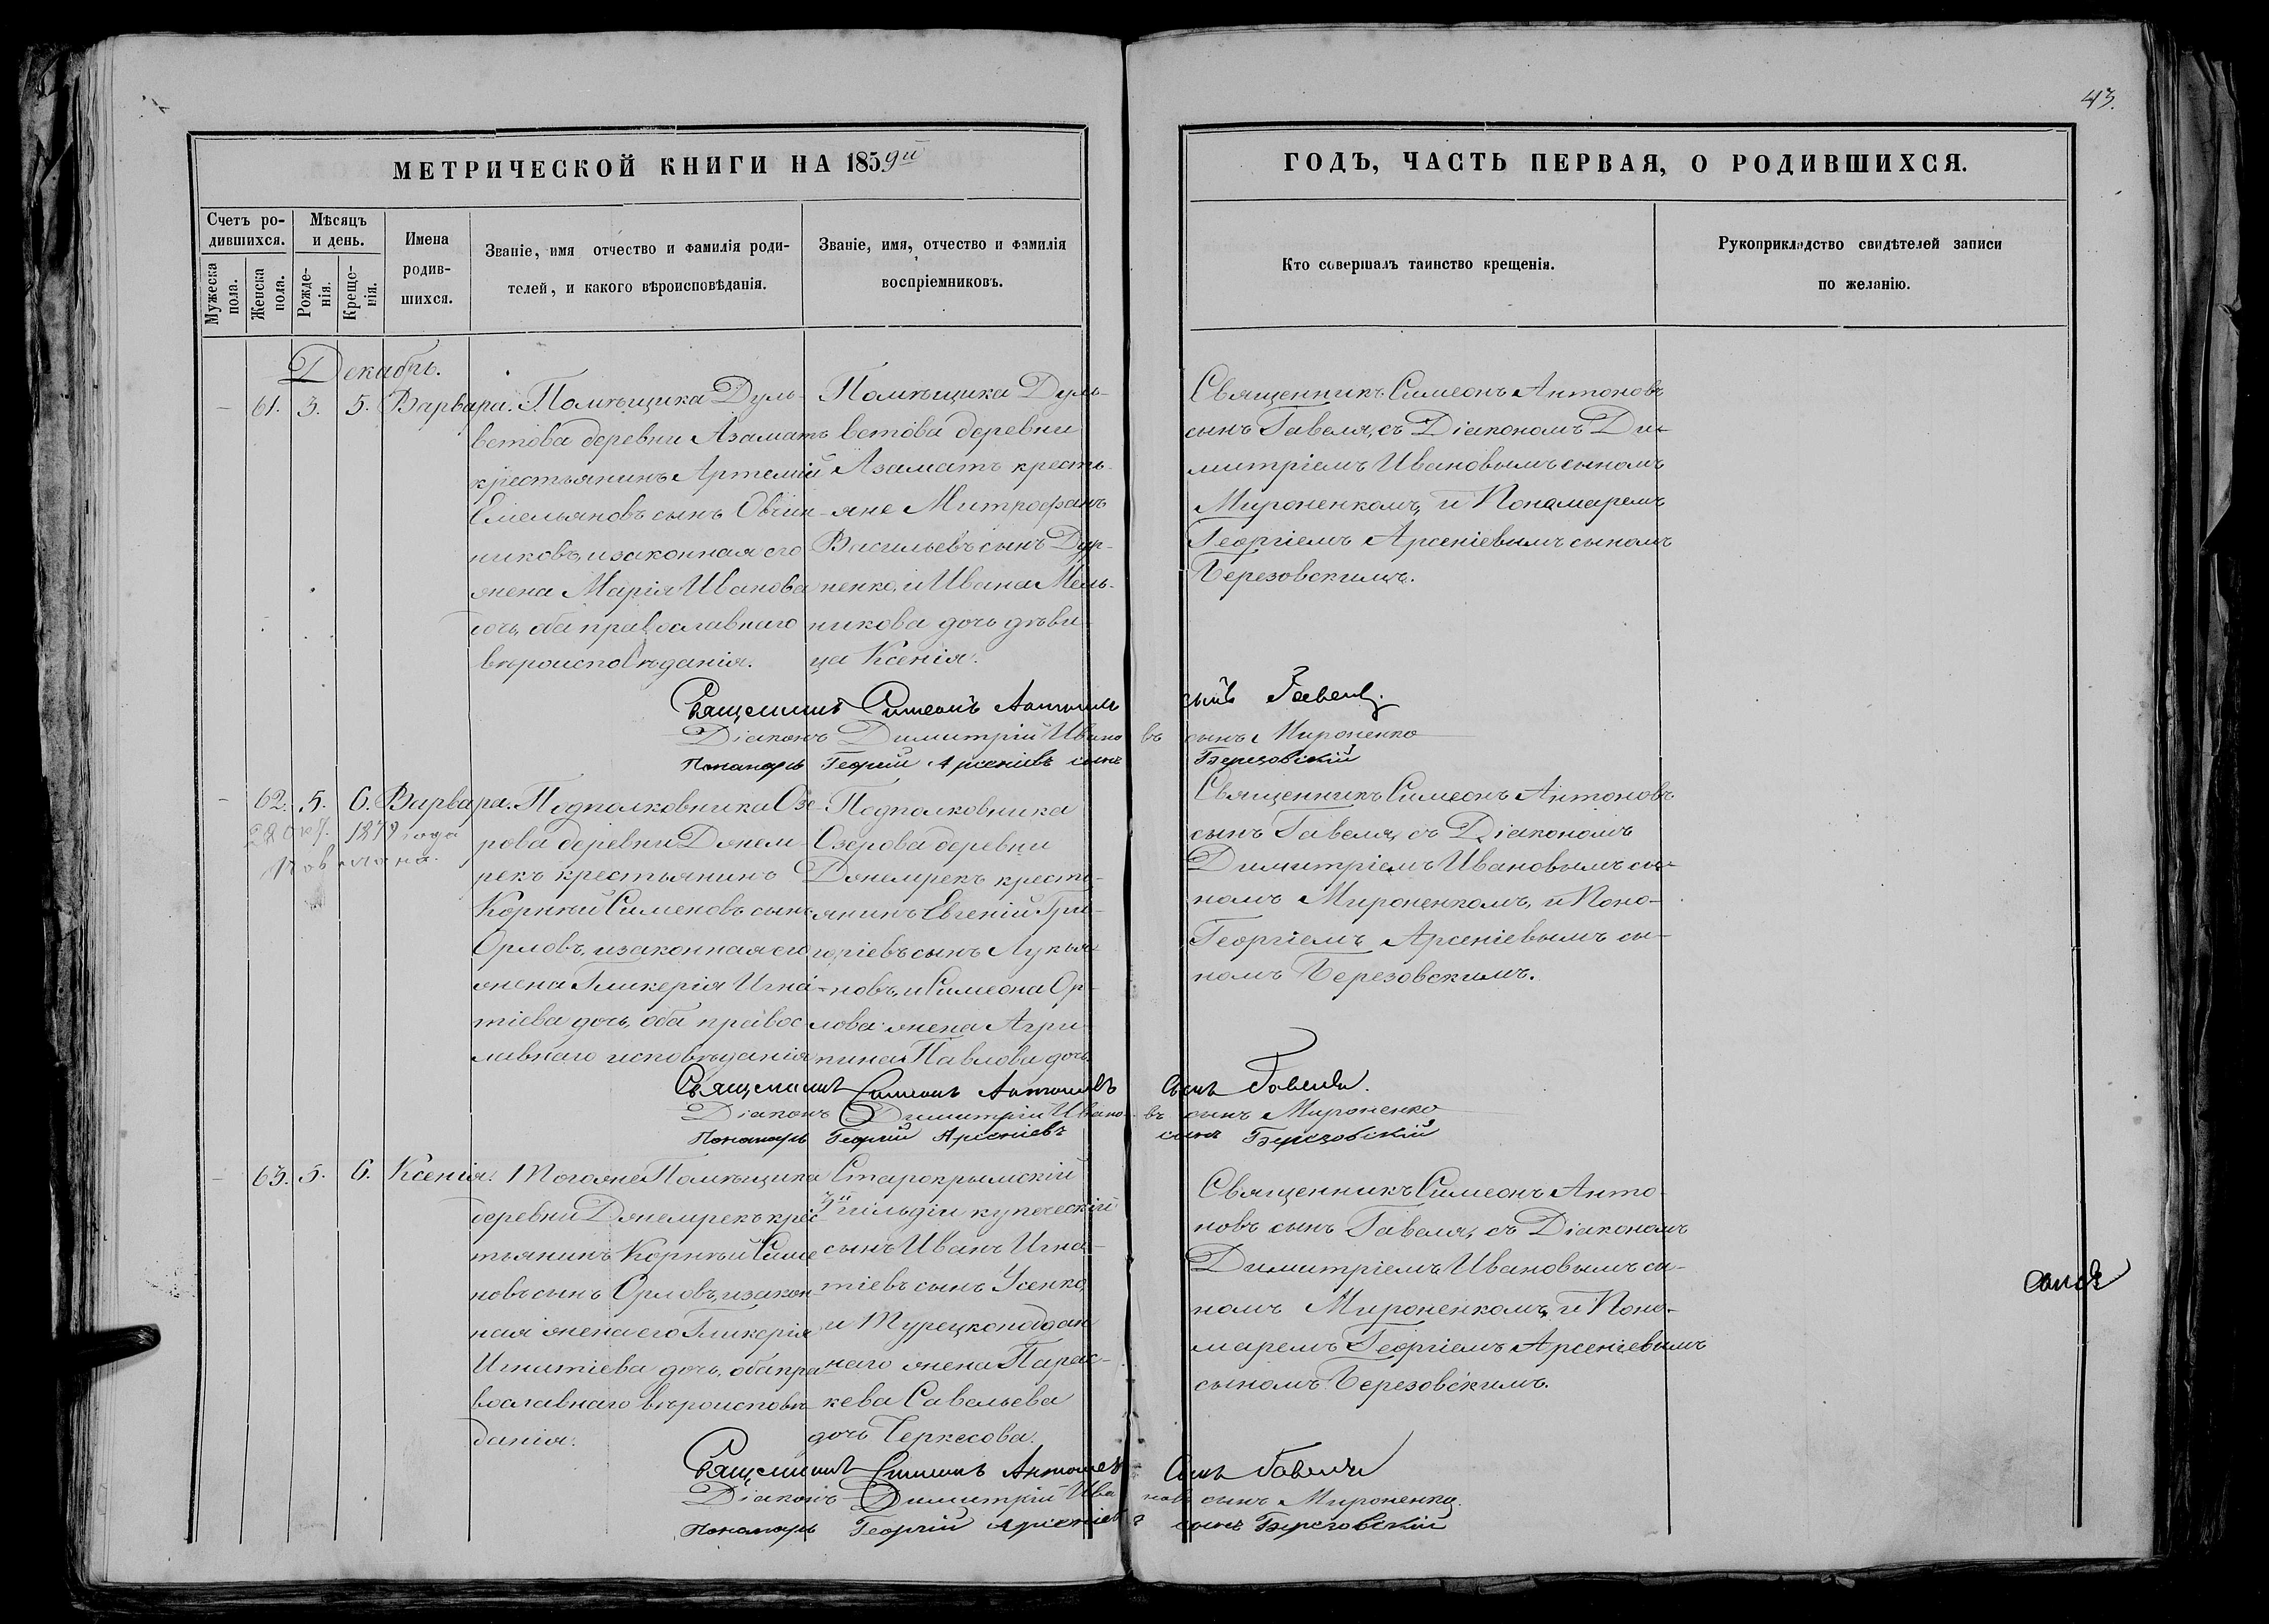 43.
МЕТРИЧЕСКОЙ КНИГИ НА 1859й
Счетъ ро-
дившихся.
Мужеска
пола.
Женска
пола.
Мѣсяцъ
и день.
Рожде-
нія.
Креще-
нія.
Имена
родив-
шихся.
Званіе, имя отчество и фамилія роди-
телей, и какого вѣроисповѣданія.
Званіе, имя, отчество и фамилія
воспріемниковъ.
ГОДЪ, ЧАСТЬ ПЕРВАЯ, О РОДИВШИХСЯ.
Кто совершалъ таинство крещенія.
Рукоприкладство свидѣтелей записи
по желанію.
Декабрь.
61. 3. 5. Варвара.
Помѣщика Дуль-
ветова деревни Азаматъ
крестьянинъ Артемій
Емельяновъ сынъ Овчин-
никовъ, и законная его
жена Марія Иванова
дочь, оба православнаго
вѣроисповѣданія.
Помѣщика Дуль-
ветова деревни
Азаматъ кресть-
яне Митрофанъ
Васильевъ сынъ Дур-
ненко, и Ивана Мель-
никова дочь дѣви-
ца Ксенія.
Священникъ Симеонъ Антоновъ
сынъ Гавеля, съ Діакономъ Ди-
митріемъ Ивановымъ сыномъ
Мироненкомъ, и Понамаремъ
Георгіемъ Арсеніевымъ сыномъ
Березовскимъ.
Священникъ Симеонъ Антоновъ сынъ Гавеля.
Діаконъ Димитрій Ивановъ сынъ Мироненко
Понамарь Георгій Арсеніевъ сынъ Березовскій
62. 5. 6. Варвара.
22 окт. 1879 года
Подполковника Озе-
рова деревни Джем-
рекъ крестьянинъ
Корнѣй Сименовъ сынъ
Орловъ, и законная его
жена Гликерія Игна-
тіева дочь, оба правос
лавнаго исповѣданія
Подполковника
Озерова деревни
Джемрекъ кресть-
янинъ Евгеній Гри-
горіевъ сынъ Лукья-
новъ, и Симеона Ор-
лова жена Агри-
пина Павлова дочь.
Священникъ Симеонъ Антоновъ
сынъ Гавеля, съ Діакономъ
Димитріемъ Ивановымъ сы-
номъ Мироненкомъ, и Поно-
Георгіемъ Арсеніевымъ сы-
номъ Березовскимъ.
Священникъ Симеонъ Антоновъ сынъ Гавеля.
Діаконъ Димитрій Ивановъ сынъ Мироненко
Понамарь Георгій Арсеніевъ сынъ Березовскій
63. 5. 6. Ксенія.
Тогоже Помѣщика
деревни Джемрекъ крес
тьянинъ Корнѣй Симе
новъ сынъ Орловъ, и закон-
ная жена его Гликерія
Игнатіева дочь, оба пра
вославнаго вѣроисповѣ-
данія.
Старокрымскій
3й гильдіи купеческій
сынъ Иванъ Игна-
тіевъ сынъ Усенко,
и Турецкоподан
наго жена Парас-
кева Савельева
дочь Черкесова.
Священникъ Симеонъ Анто-
новъ сынъ Гавеля, съ Діакономъ
Димитріемъ Ивановымъ сы-
номъ Мироненкомъ, и Поно-
маремъ Георгіемъ Арсеніевымъ
сыномъ Березовскимъ.
Священникъ Симеонъ Антоновъ Сынъ Гавеля
Діаконъ Димитрій Ивановъ сынъ Мироненко.
Понамарь Георгій Арсеніевъ сынъ Березовскій